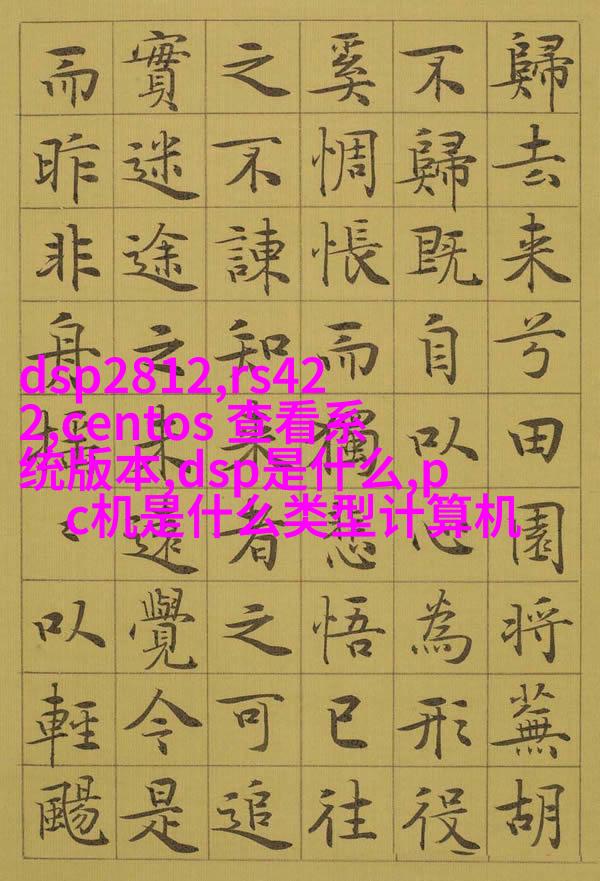 歸去来兮田園将蕪胡
不歸既自以心為形役
奚惆悵而獨悲悟已往
之不諫知来者之可追
實迷途之未遠覺今是
而昨非舟摇〻以輕颺
dsp2812,rs42
2,centos 查看系
统版本,dsp是什么,p
c机是什么类型计算机